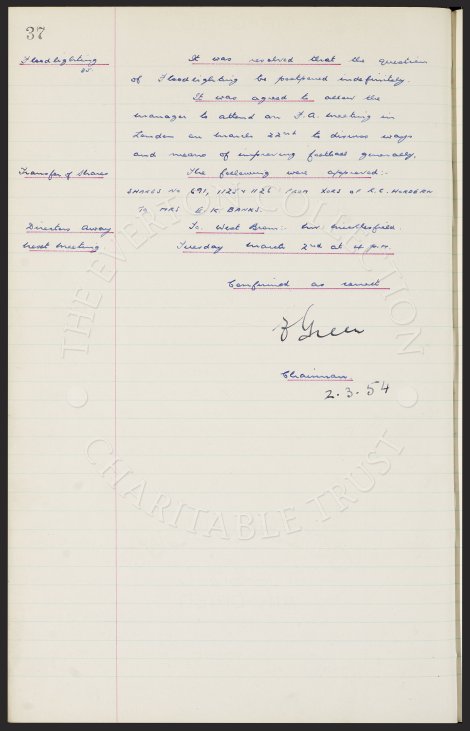 37
Floodlighting
It was resolved that the question
of Floodlighting be postponed indefinitely.
It was agreed to allow the
manager to attend an F.A. meeting in
London on March 22nd to discuss ways
and means of improving football generally.
Transfer of Shares
The following were approved:-
SHARES NO 691, 1125 & 1126 FROM XORS OF R.C. HORDERN
TO MRS E K BANKS.
Directors Away
To West Brom:-
Next Meeting.
Tuesday March 2nd at 4 p.m.
Confirmed as correct
Green
Chairman
2.3.54
THE EVERTON COLLECTION
CHARITABLE TRUST